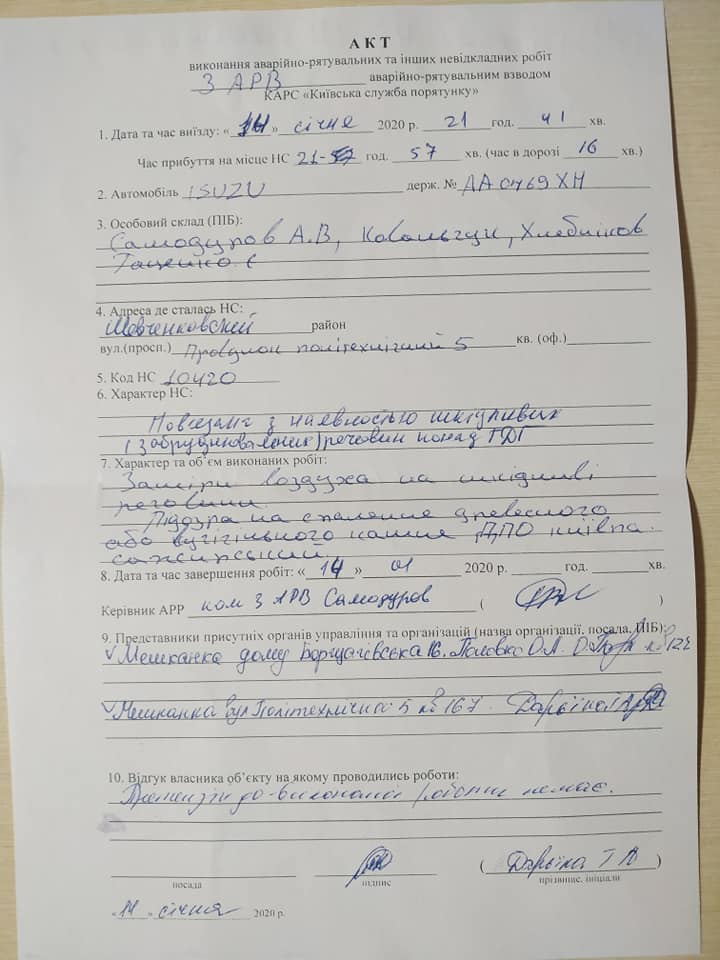 АКТ
виконання аварійно-рятувальних та інших невідкладних робіт
3 АРВ аварійно-рятувальним взводом
КАРС «Київська служба порятунку»
1. Дата та час виїзду: «14» січня 2020 р. 21 год. 41 хв.
Час прибуття на місце НС 21 год. 57 хв. (час в дорозі 16 хв.)
2. Автомобіль ISUZU держ. № АА 0769 ХН
3. Особовий склад (ПІБ):
Самодуров А.В, Ковальчук, Хлебніков
Таценко Є
4. Адреса де сталась НС:
Шевченковский район
вул.(просп.) Провулок політехнічний 5 кв. (оф.)
5. Код НС 10420
6. Характер НС:
Повязане з наявностью шкідливих
(забруднювальних) речовин понад ГДГ
7. Характер та об’єм виконаних робіт:
Заміри воздуха на шкідливі
речовини.
Підозра на спалення древесного
або вугігільного камня ДПО
8. Дата та час завершення робіт: «14» 01 2020 р. год. хв.
Керівник АРР ком 3 АРВ Самодуров ( )
9. Представники присутніх органів управління та організацій (назва організації, посада, ПІБ):
Мешканка дому Борщагівська 16. О.Л. кв 124
Мешканка вул Політехнічної 5 кв 167.
10. Відгук власника об’єкту на якому проводились роботи:
Претензій до виконаної роботи немає.
( Т В )
посада підпис прізвище, ініціали
«14» січня 2020 р.